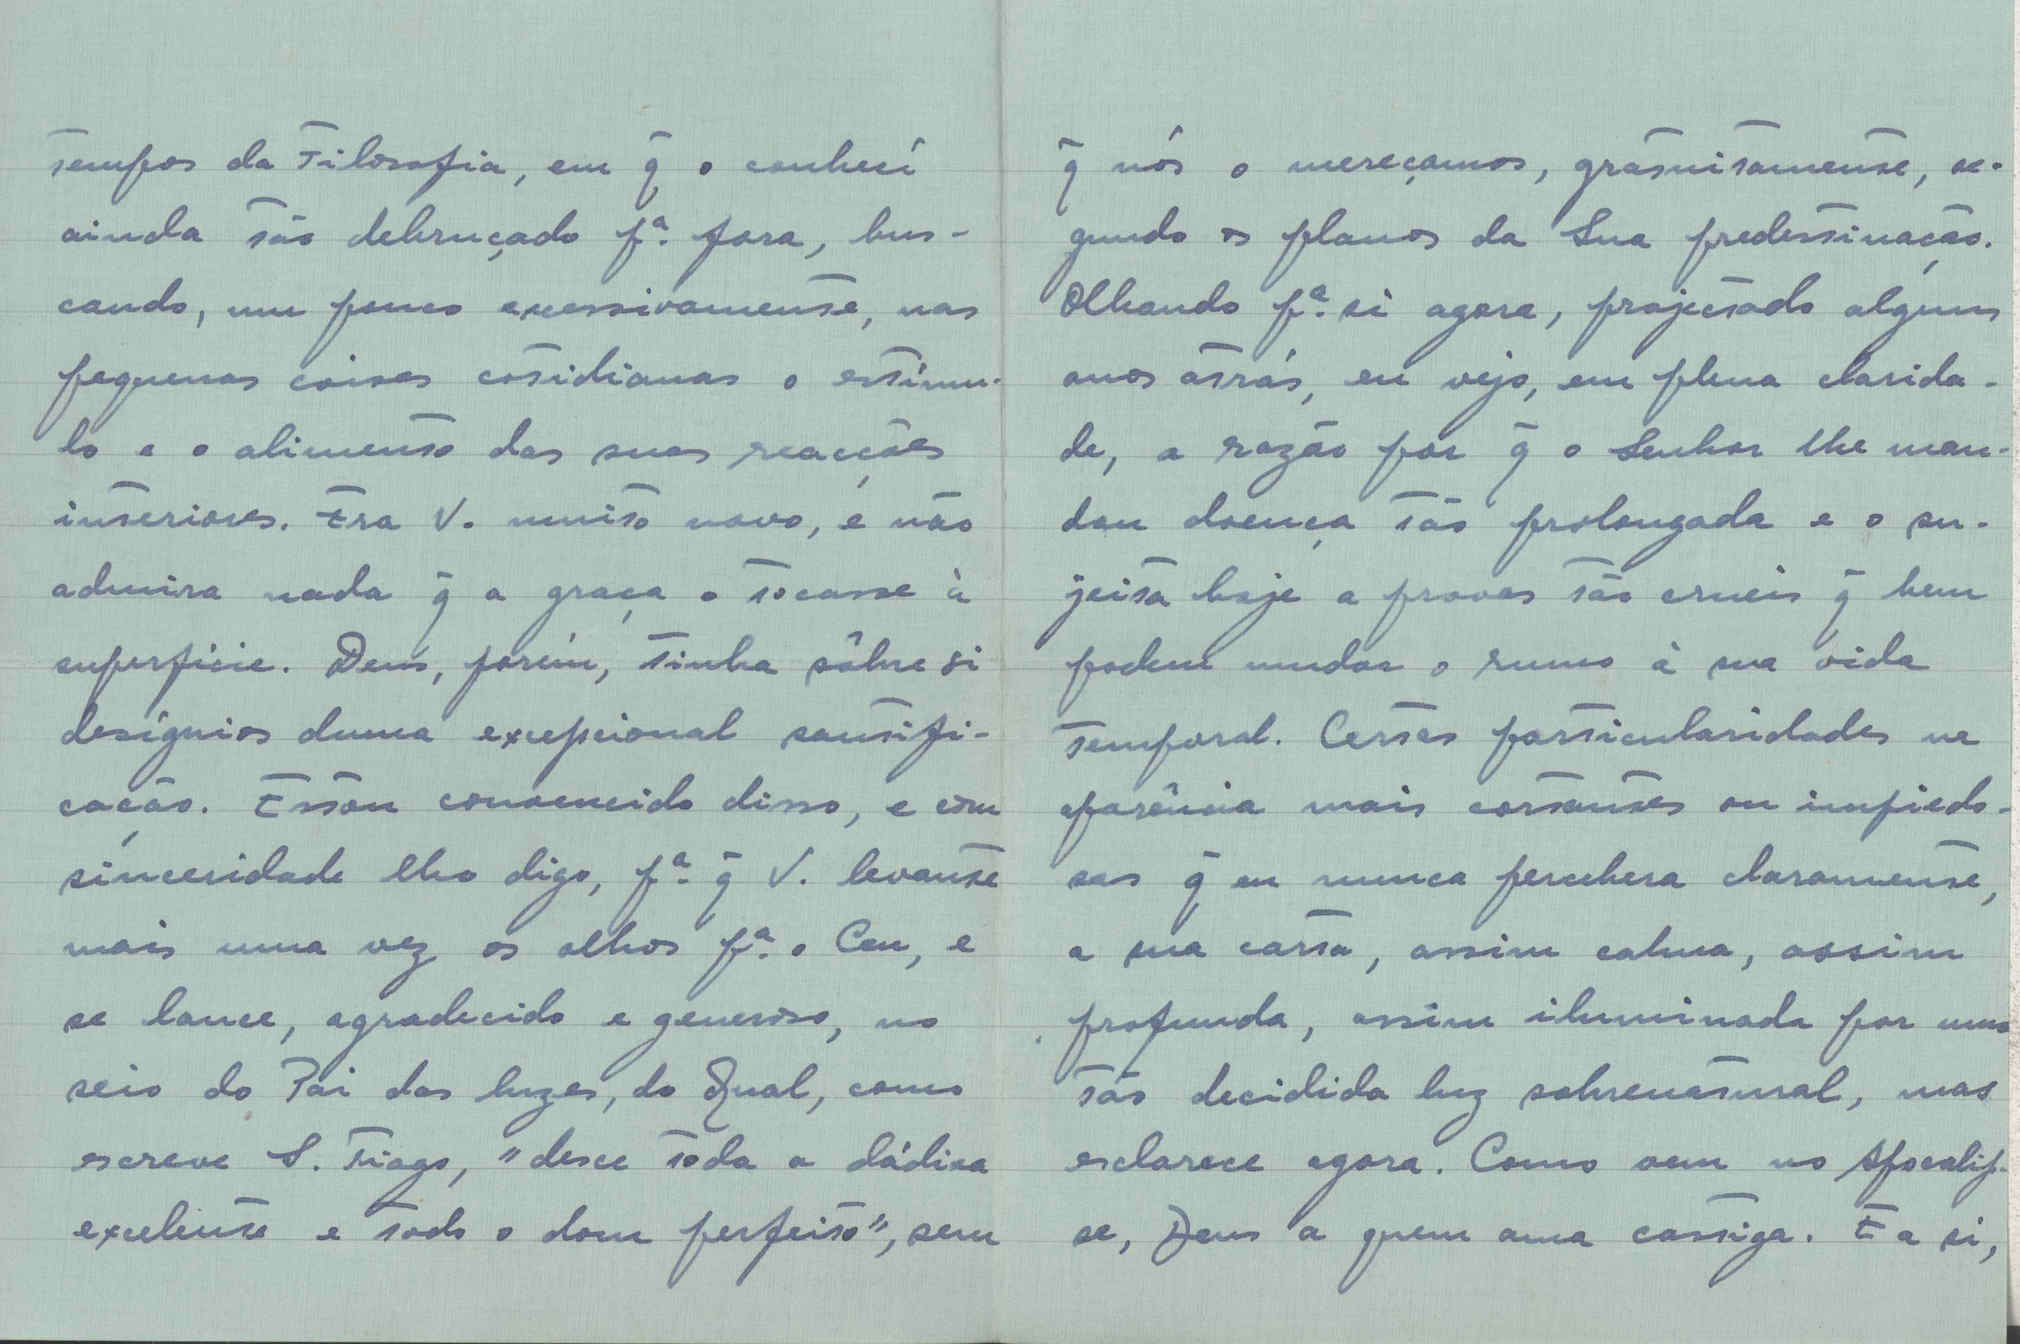 tempos da Filosofia, em q̃ o conhecí
ainda tão debruçado pª. fora, bus-
cando, um pouco excessivamente, nas
pequenas coisas cotidianas o estímu-
lo e o alimento das suas reacções
interiores. Era V. muito novo, e não
admira nada q̃ a graça o tocasse à
superfície. Deus, porém, tinha sôbre si
desígnios duma excepcional santifi-
cação. Estou convencido disso, e com
sinceridade lho digo, pª. q̃ V. levante
mais uma vez os olhos pª. o Ceu, e
se lance, agradecido e generoso, no
seio do Pai das luzes, do Qual, como
escreve S. Tiago, "desce toda a dádiva
excelente e todo o dom perfeito", sem
q̃ nós o mereçamos, gratuitamente, se-
gundo os planos da Sua predestinação.
Olhando pª. si agora, projectado alguns
anos atrás, eu vejo, em plena clarida-
de, a razão por q̃ o Senhor lhe man-
dou doença tão prolongada e o su-
jeita hoje a provas tão crueis q̃ bem
podem mudar o rumo à sua vida
temporal. Certas particularidades na
aparência mais cortantes ou impiedo-
sas q̃ eu nunca percebera claramente,
a sua carta, assim calma, assim
profunda, assim iluminada por uma
tão decidida luz sobrenatural, mas
esclarece agora. Como vem no Apocalip-
se, Deus a quem ama castiga. E a si,